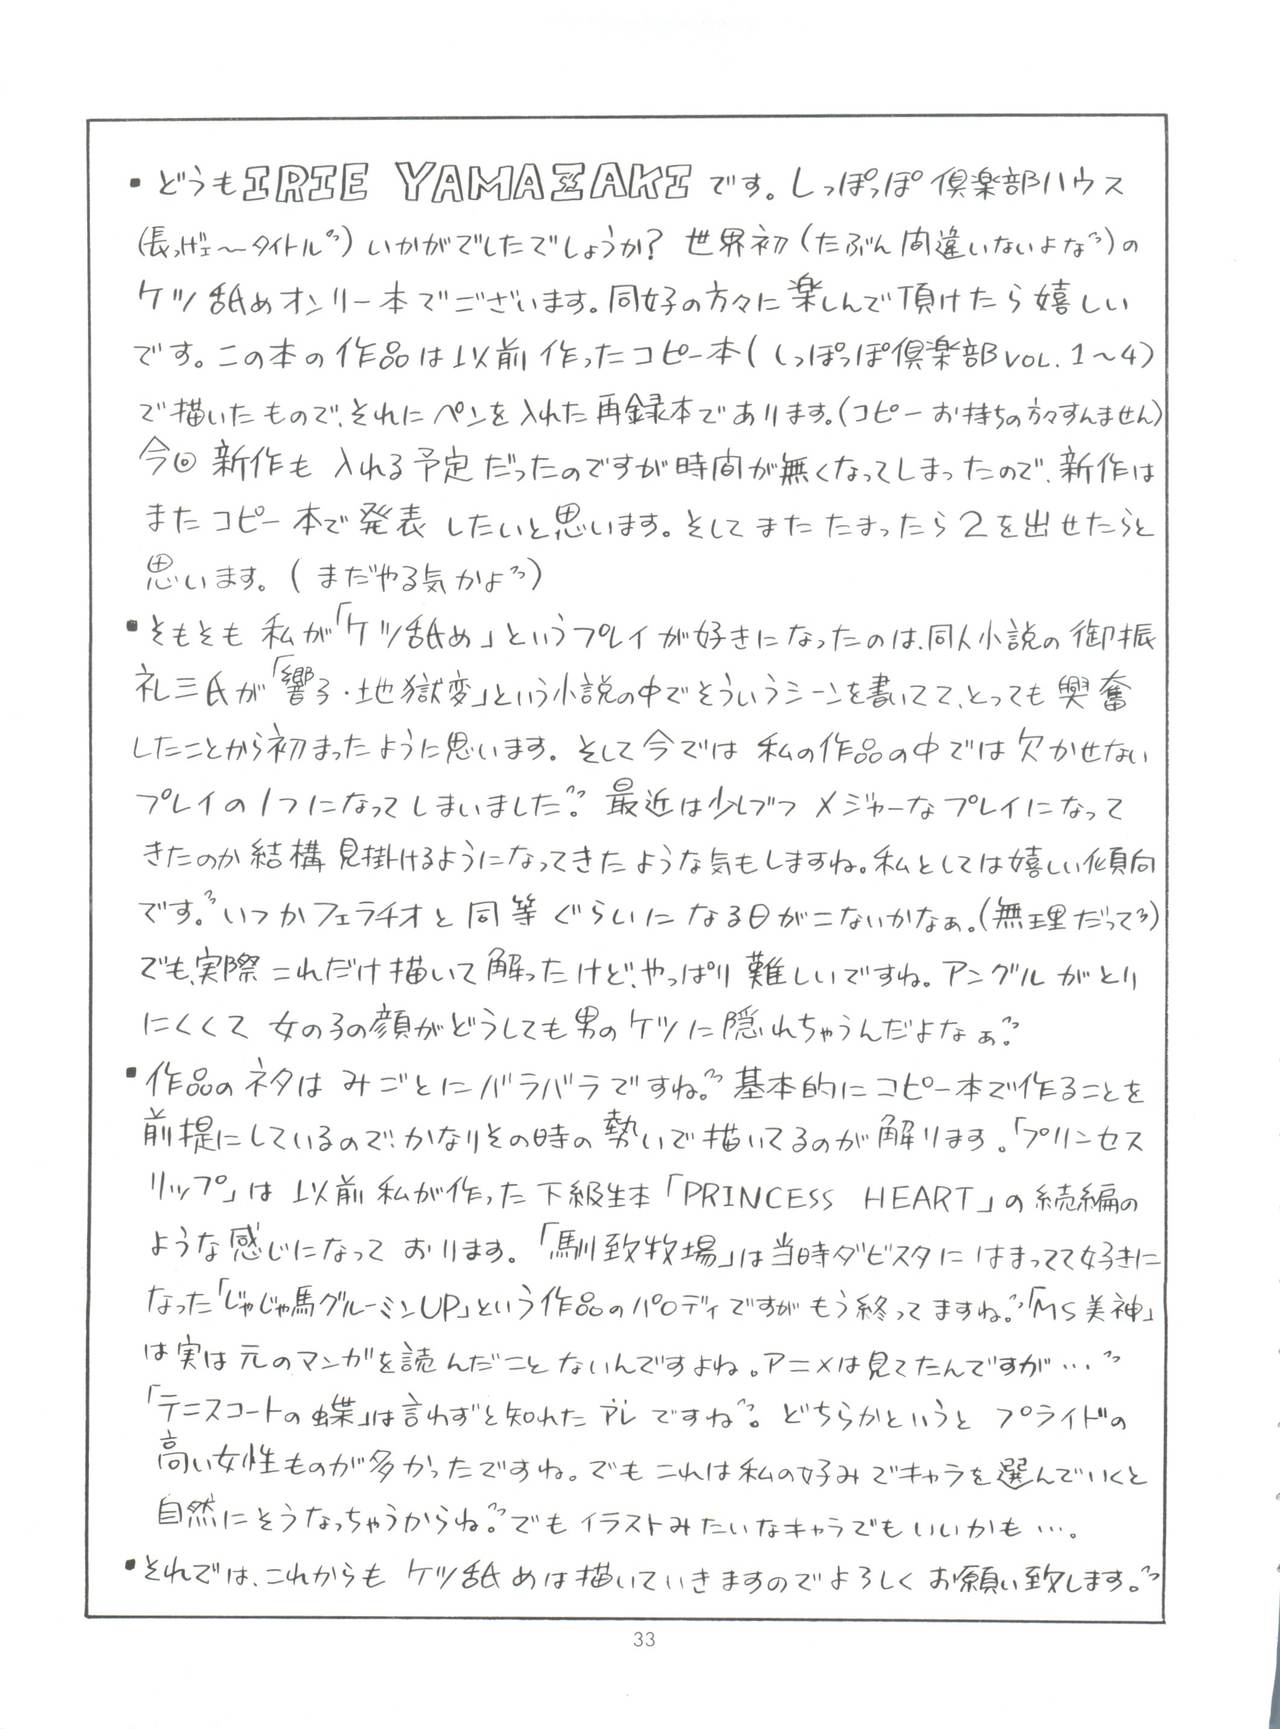 ・どうもIRIE YAMAZAKIです。しっぽっぽ倶楽部ハウス
(長っげェ〜タイトル〃)いかがでしたでしょうか？世界初(たぶん間違いないよな〃)の
ケツ舐めオンリー本でございます。同好の方々に楽しんで頂けたら嬉しい
です。この本の作品は以前作ったコピー本(しっぽっぽ倶楽部VOL.1〜4)
で描いたもので、それにペンを入れた再録本であります。(コピーお持ちの方々すんません)
今回新作も入れる予定だったのですが時間が無くなってしまったので、新作は
またコピー本で発表したいと思います。そしてまたたまったら2を出せたらと
思います。(まだやる気かよ〃)
・そもそも私が「ケツ舐め」というプレイが好きになったのは、同人小説の御振
礼三氏が「響子・地獄変」という小説の中でそういうシーンを書いてて、とっても興奮
したことから初まったように思います。そして今では私の作品の中では欠かせない
プレイの1つになってしまいました〃。最近は少しづつメジャーなプレイになって
きたのか結構見掛けるようになってきたような気もしますね。私としては嬉しい傾向
です。〃いつかフェラチオと同等ぐらいになる日がこないかなぁ。(無理だって〃)
でも、実際これだけ描いて解ったけど、やっぱり難しいですね。アングルがとり
にくくて女の子の顔がどうしても男のケツに隠れちゃうんだよなぁ。〃
・作品のネタはみごとにバラバラですね。〃基本的にコピー本で作ることを
前提にしているので、かなりその時の勢いで描いてるのが解ります。「プリンセス
リップ」は以前私が作った下級生本「PRINCESS HEART」の続編の
ような感じになっております。「馴致牧場」は当時ダビスタにはまってて好きに
なった「じゃじゃ馬グルーミンUP」という作品のパロディですがもう終ってますね。〃「MS美神」
は実は元のマンガを読んだことないんですよね。アニメは見てたんですが…〃
「テニスコートの蝶」は言わずと知れたアレですね〃。どちらかというとプライドの
高い女性ものが多かったですね。でもこれは私の好みでキャラを選んでいくと
自然にそうなっちゃうからね。〃でもイラストみたいなキャラでもいいかも…。
・それでは、これからもケツ舐めは描いていきますのでよろしくお願い致します。〃
33